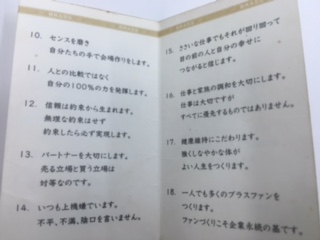 10. センスを磨き
自分たちの手で会場作りをします。
11. 人との比較ではなく
自分の100%の力を発揮します。
12. 信頼は約束から生まれます。
無理な約束はせず
約束したら必ず実現します。
13. パートナーを大切にします。
売る立場と買う立場は
対等なのです。
14. いつも上機嫌でいます。
不平、不満、陰口を言いません。
15. ささいな仕事でもそれが回り回って
目の前の人と自分の幸せに
つながると信じます。
16. 仕事と家族の調和を大切にします。
仕事は大切ですが
すべてに優先するものではありません。
17. 健康維持にこだわります。
強くしなやかな体が
よい人生をつくります。
18. 一人でも多くのプラスファンを
つくります。
ファンづくりこそ企業永続の基です。